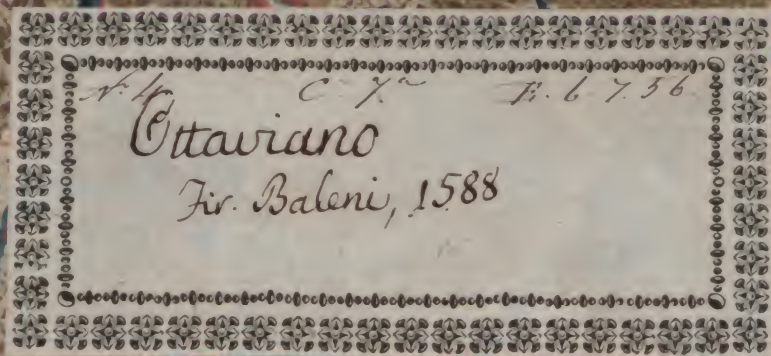 N. 4 C 7.a E. 6. 7. 56
Ottaviano
Fir. Baleni, 1588